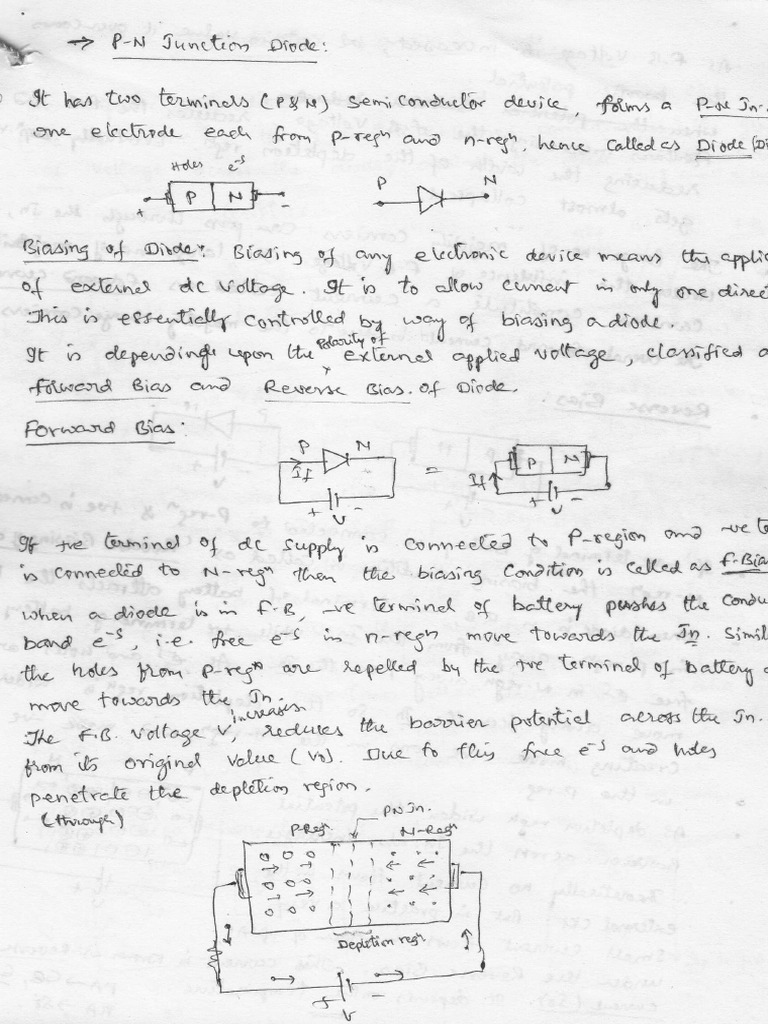 → P-N Junction Diode:
It has two terminals (P & N) semiconductor device, forms a P-N Jn.
one electrode each from P-regn and n-regn, hence called as Diode (Di
Holes e-s
P N
+ -
P N
Biasing of Diode: Biasing of any electronic device means the applic
of external dc voltage. It is to allow current in only one direct
This is essentially controlled by way of biasing a diode.
It is depending upon the polarity of external applied voltage, classified a
forward Bias and Reverse Bias of Diode.
Forward Bias:
P N
If
+ V -
=
P N
If
+ V -
If +ve terminal of dc supply is connected to P-region and -ve te
is connected to N-regn then the biasing condition is called as f-Bias
when a diode is in F.B, -ve terminal of battery pushes the condu
band e-s, i.e. free e-s in n-regn move towards the Jn. Simil
the holes from P-regn are repelled by the +ve terminal of battery a
move towards the Jn.
The F.B. voltage V, increases reduces the barrier potential across the Jn.
from its original value (V0). Due to this free e-s and holes
penetrate the depletion region.
(through)
PN Jn.
P-Regn N-Regn
Depletion regn
+ V -